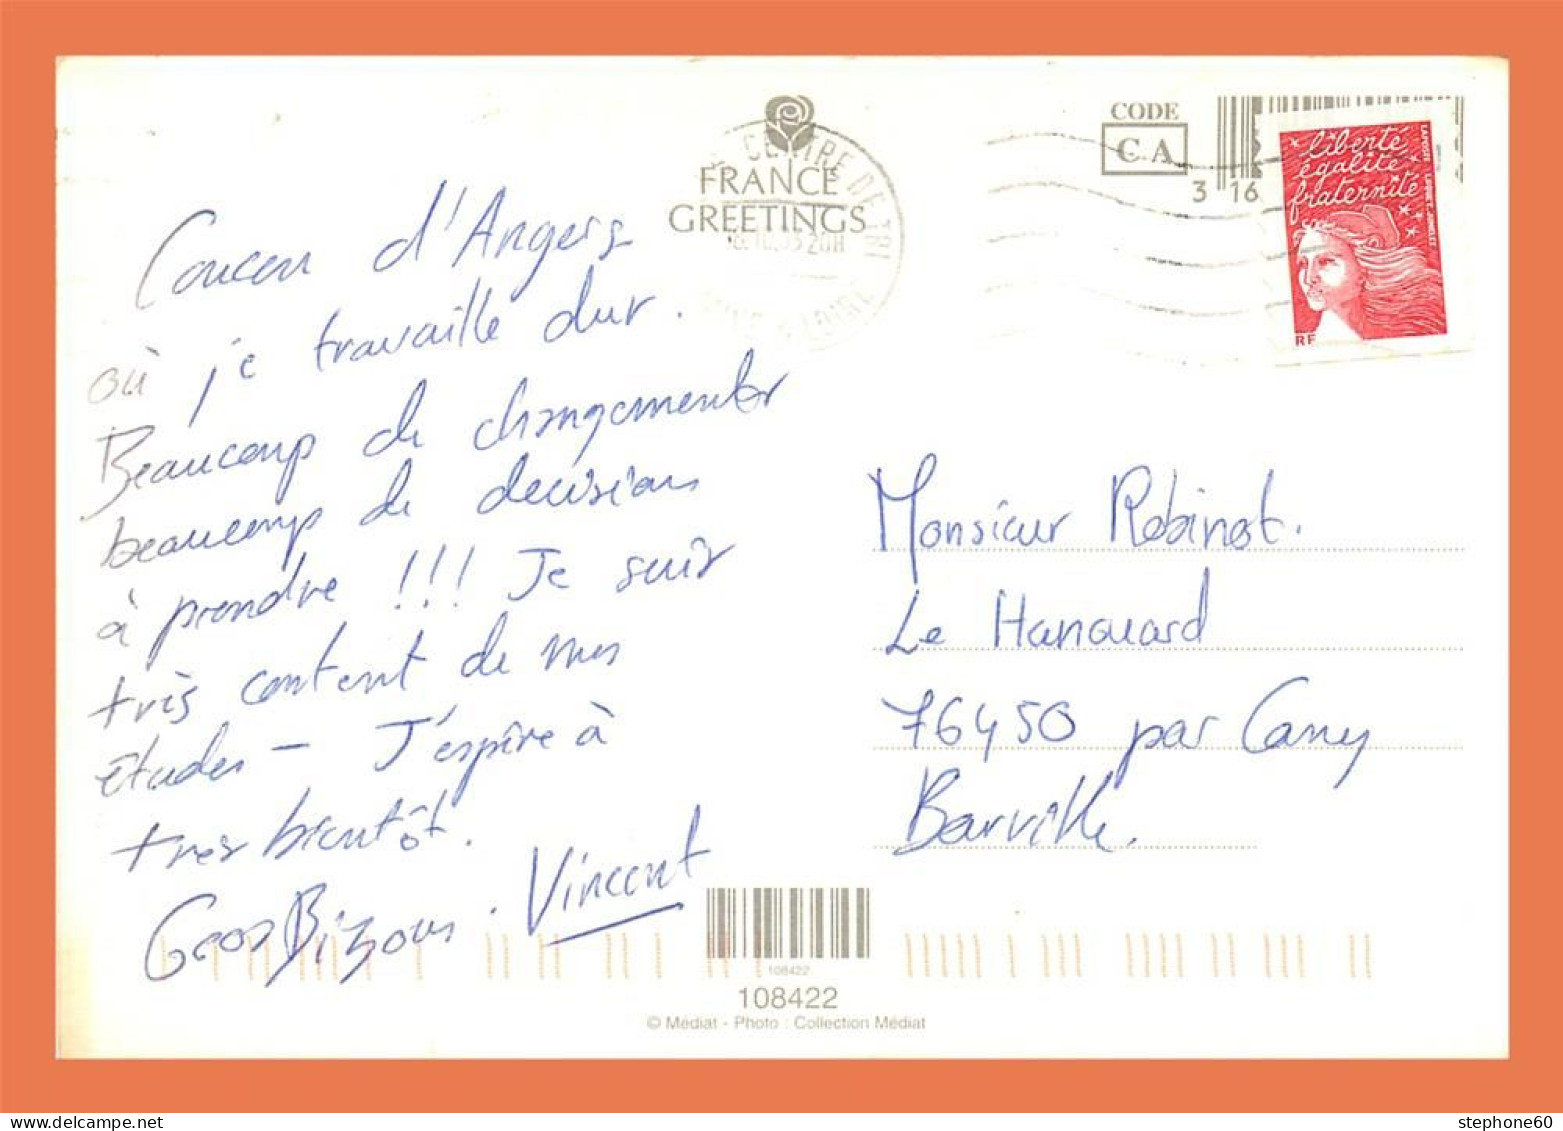 Coucou d'Angers
où je travaille dur.
Beaucoup de changements
beaucoup de decisions
à prendre !!! Je suis
très content de mes
études - J'espère à
très bientôt.
Gros Bisous. Vincent
FRANCE
GREETINGS
CENTRE DE TRI
20H
LOIRE
CODE
CA
3 16
liberté
égalité
fraternité
LA POSTE
RF
Monsieur Robinot.
Le Hanouard
76450 par Cany
Barville.
108422
108422
© Médiat - Photo : Collection Médiat
stephone60